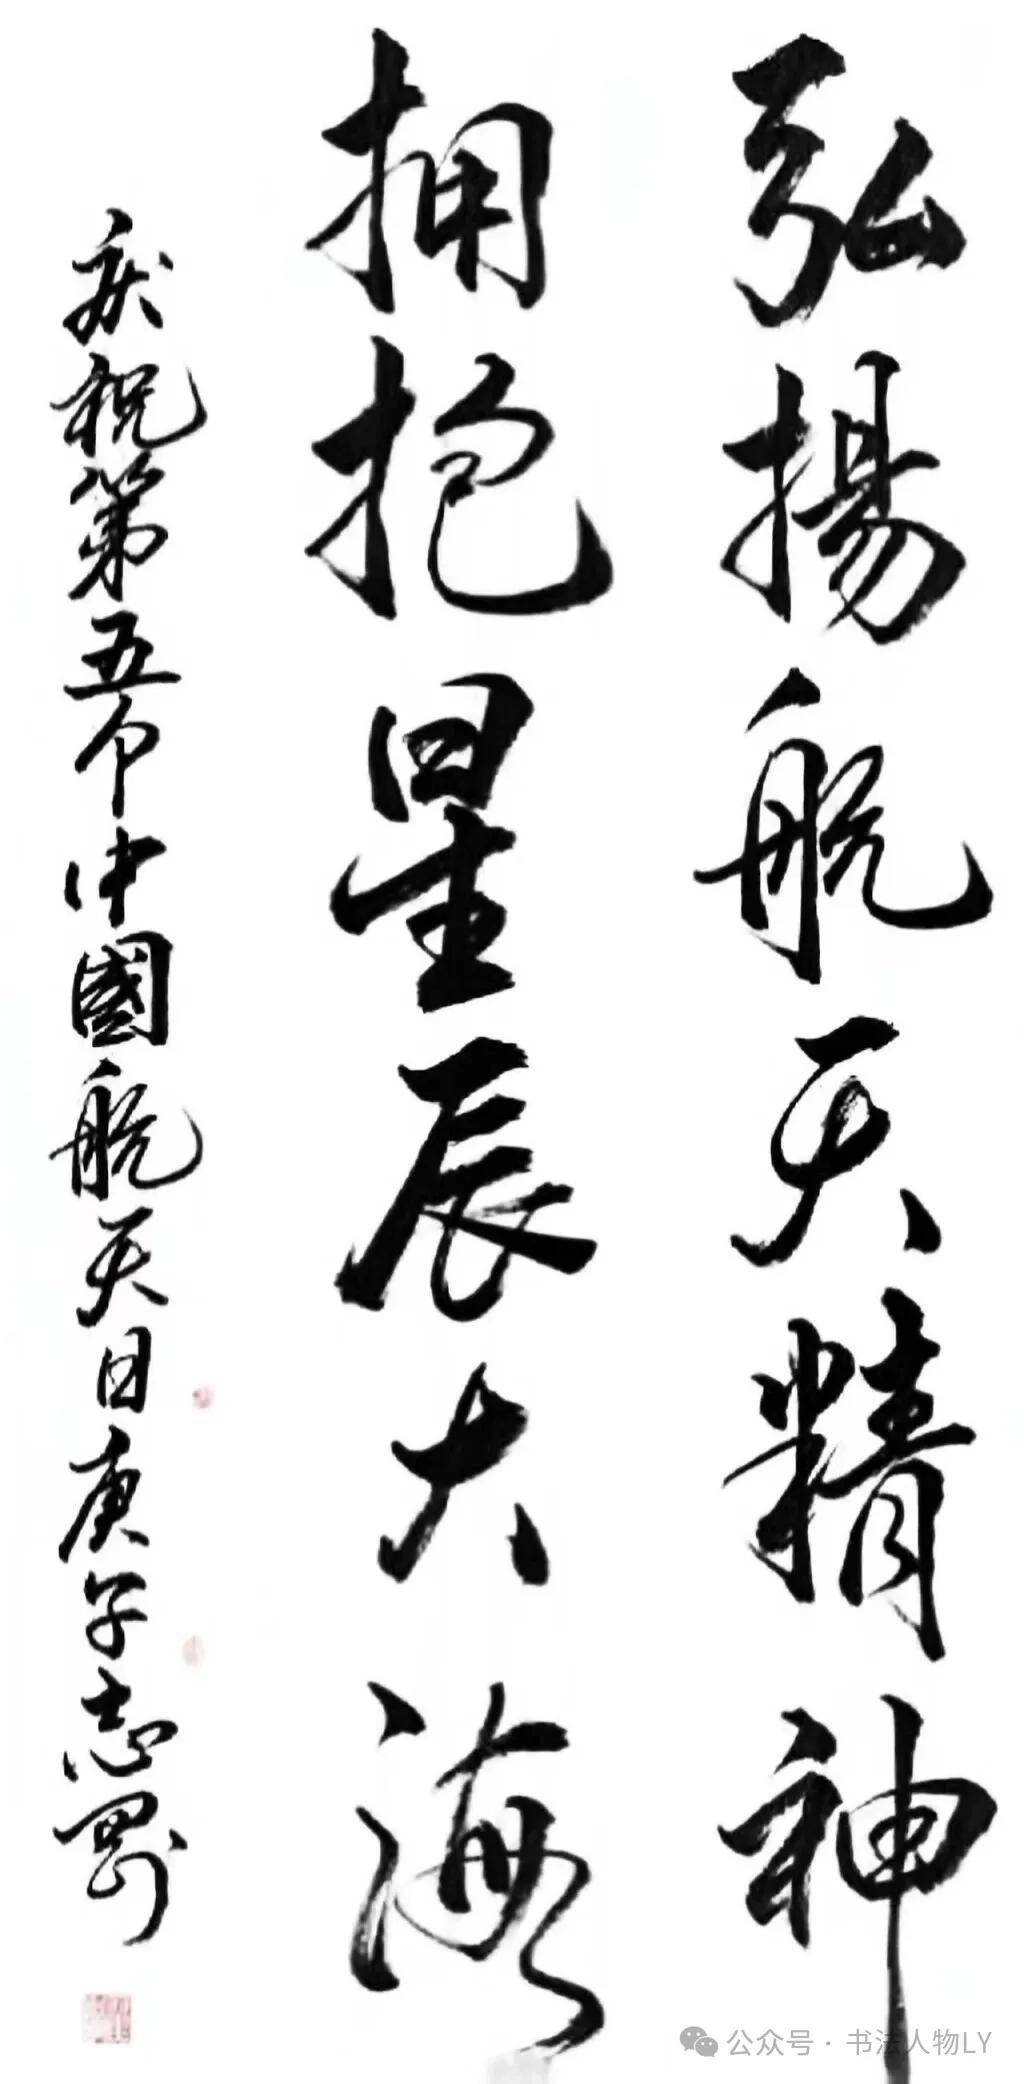 弘揚航天精神
拥抱星辰大海
庆祝第五个中國航天日庚子志剛
公众号 · 书法人物LY